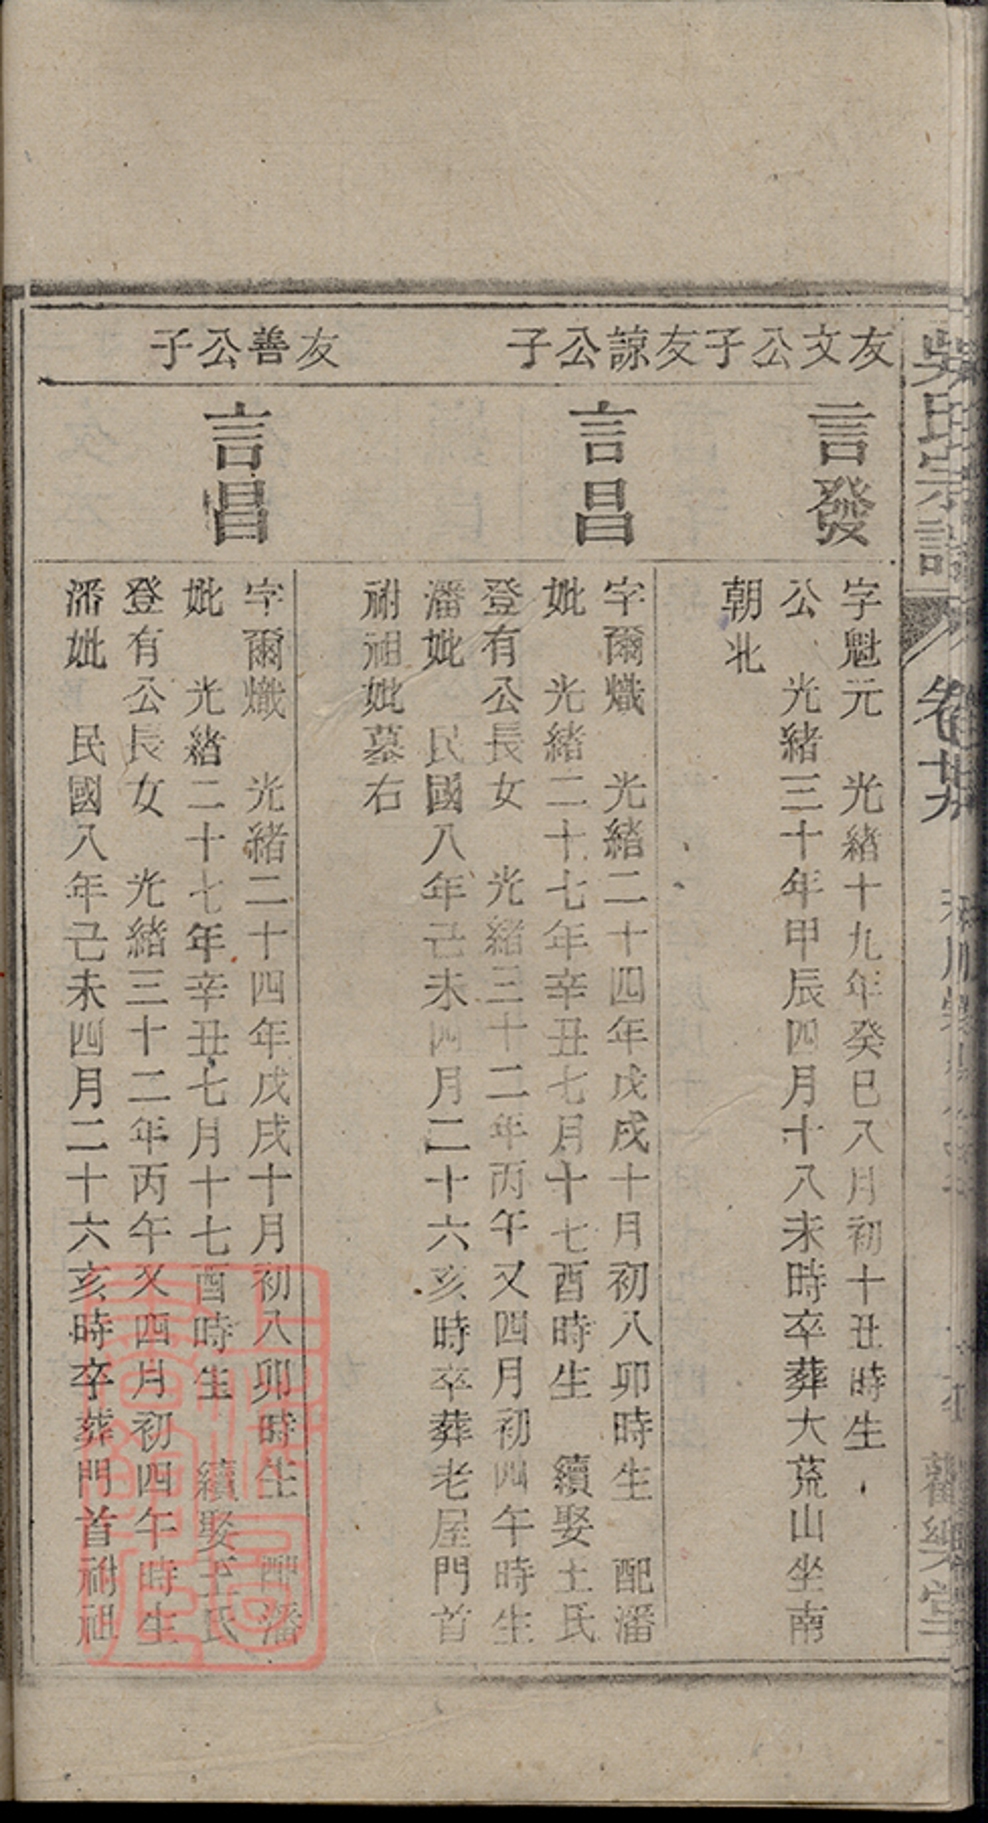 吳氏宗譜
卷廿
友文公子
言發
字魁元　光緒十九年癸巳八月初十丑時生
公　光緒三十年甲辰四月十八未時卒葬大荒山坐南
朝北
友諒公子
言昌
字爾熾　光緒二十四年戊戌十月初八卯時生　配潘
妣　光緒二十七年辛丑七月十七酉時生　續娶王氏
登有公長女　光緒三十二年丙午又四月初四午時生
潘妣　民國八年己未四月二十六亥時卒葬老屋門首
祔祖妣墓右
友善公子
言昌
字爾熾　光緒二十四年戊戌十月初八卯時生　配潘
妣　光緒二十七年辛丑七月十七酉時生　續娶王氏
登有公長女　光緒三十二年丙午又四月初四午時生
潘妣　民國八年己未四月二十六亥時卒葬門首祔祖
上海圖書館藏